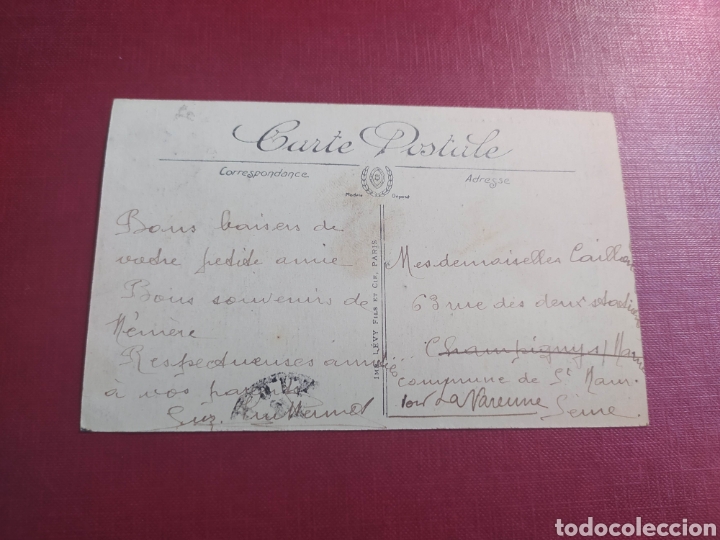 Carte Postale
Correspondance
Adresse
Modèle Déposé
Bons baisers de
votre petite amie
Bons souvenirs de
Mémère
Respectueuses amitiés
à vos
IMP. LÉVY FILS ET CIE, PARIS
Mesdemoiselles
63 rue des deux
Champigny s/ Marne
commune de St Maur
La Varenne
Seine
todocoleccion
todocoleccion.net